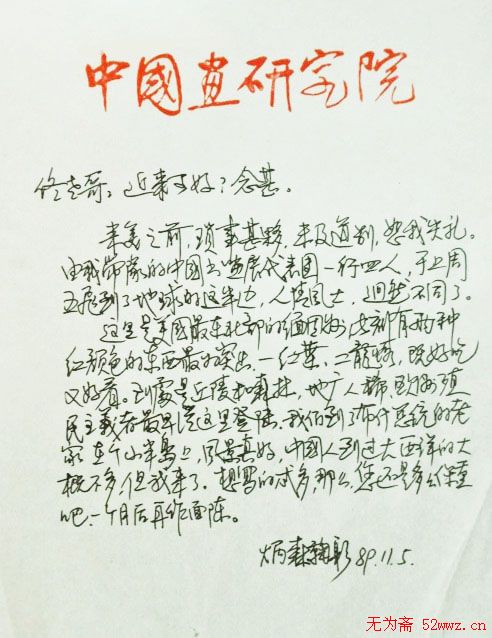 中國畫研究院
佟老哥：近来可好？念甚。
来美之前，琐事甚夥，未及道别，恕我失礼。
由我带家的中国画巡展代表团一行四人，于上周
五飞到了地球的这半边，人情风土，迥然不同了。
这里是美国最东北部的缅因州，此刻有两种
红颜色的东西最为突出，一红叶，二龙虾，既好吃
又好看。到处是丘陵和森林，地广人稀，欧洲殖
民主义者最早从这里登陆，我们到了布什总统的老
家在个小半岛上，风景真好，中国人到过大西洋的大
概不多，但我来了。想写的甚多，那么，您还是多多保重
吧，一个月后再作面陈。
炳森 89.11.5.
无为斋 52wwz.cn